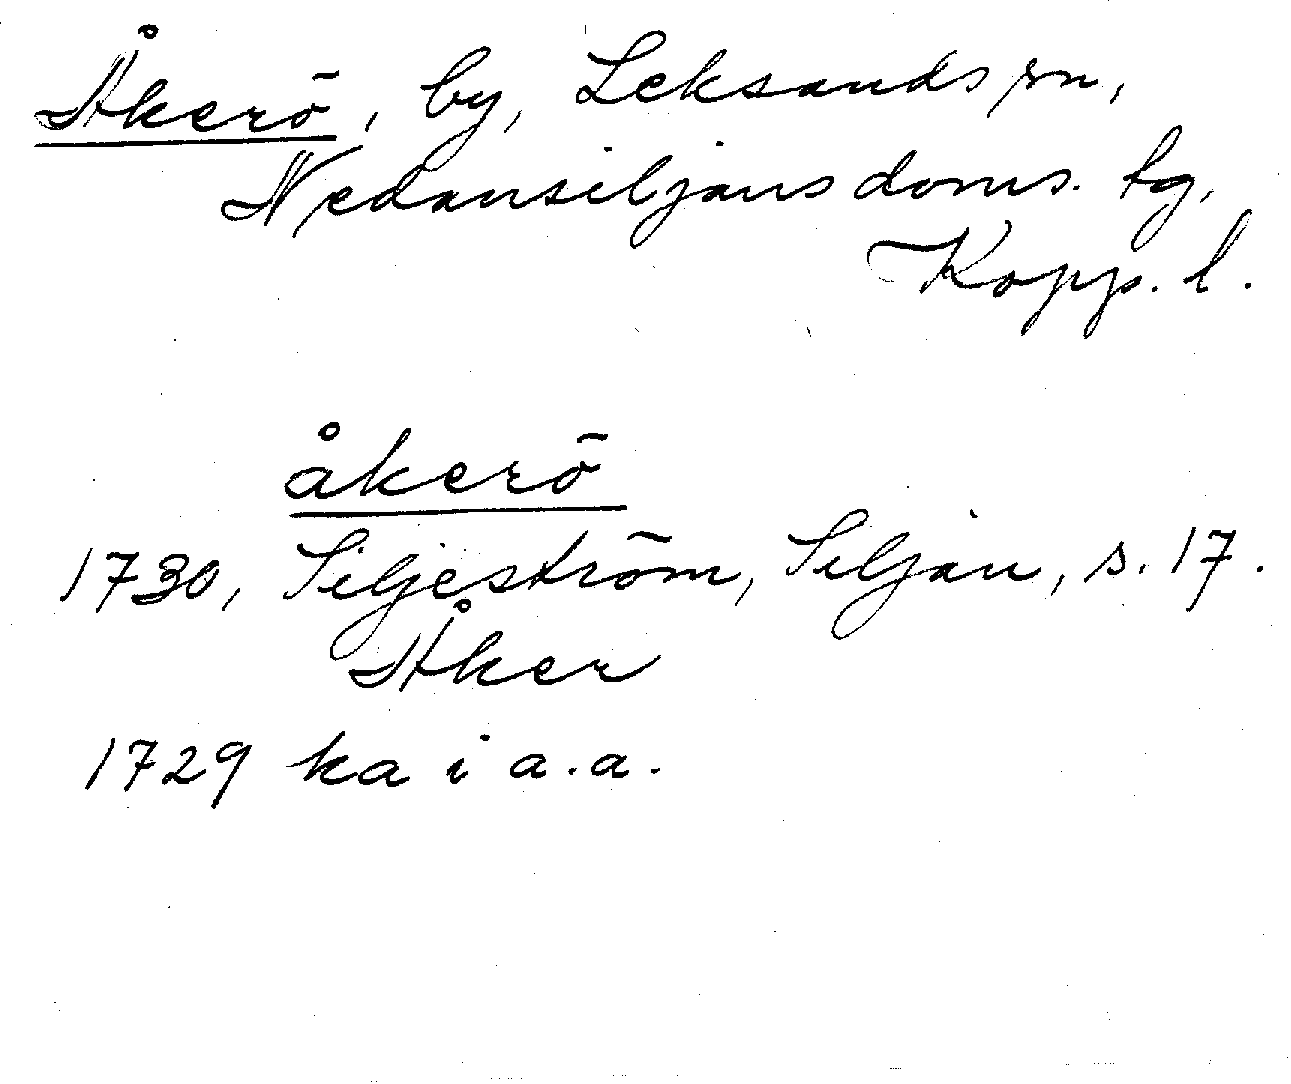 Åkerö, by, Leksands sn,
Nedansiljans doms. tg,
Kopp. l.
åkerö
1730, Siljeström, Siljan, s. 17.
Åker
1729 ka i a.a.